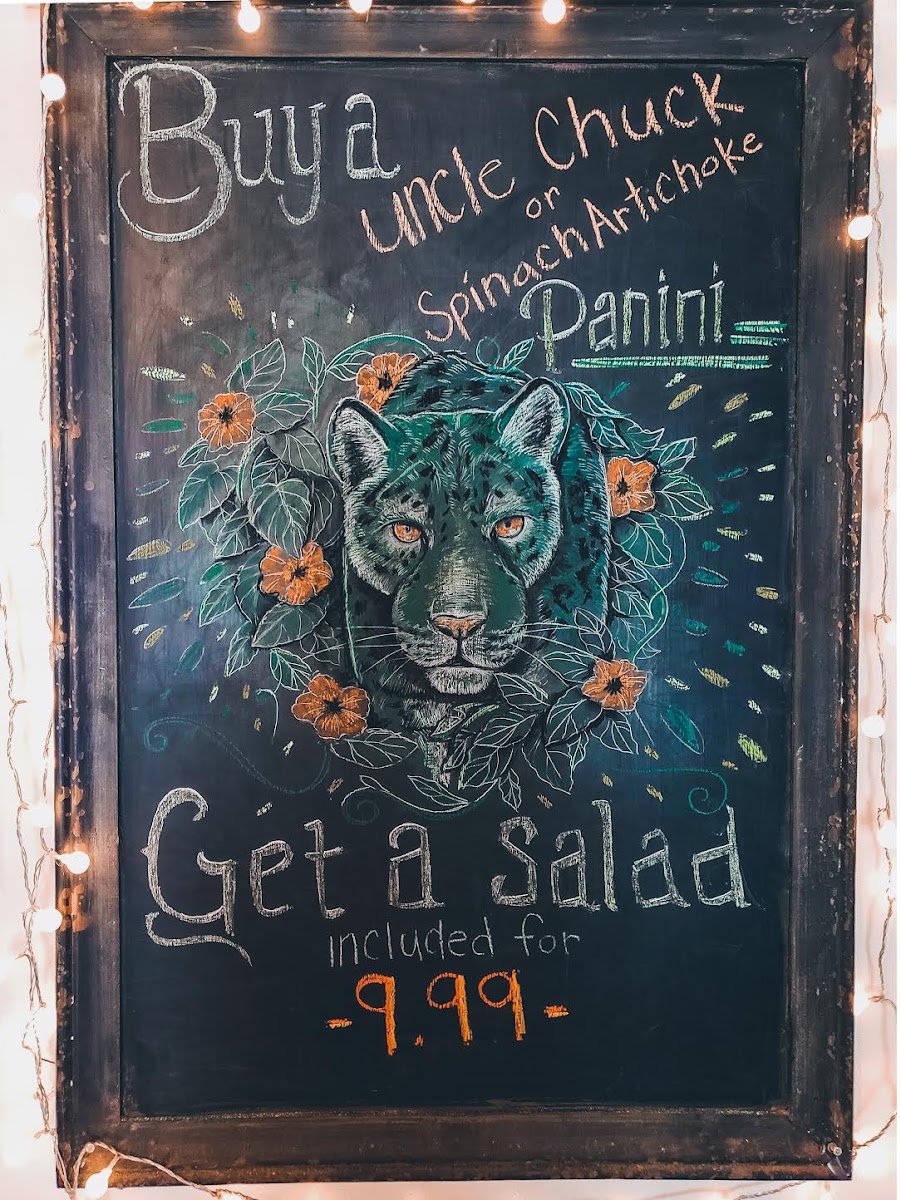 Buy a
uncle Chuck
or
Spinach Artichoke
Panini
Get a Salad
included for
-9.99-